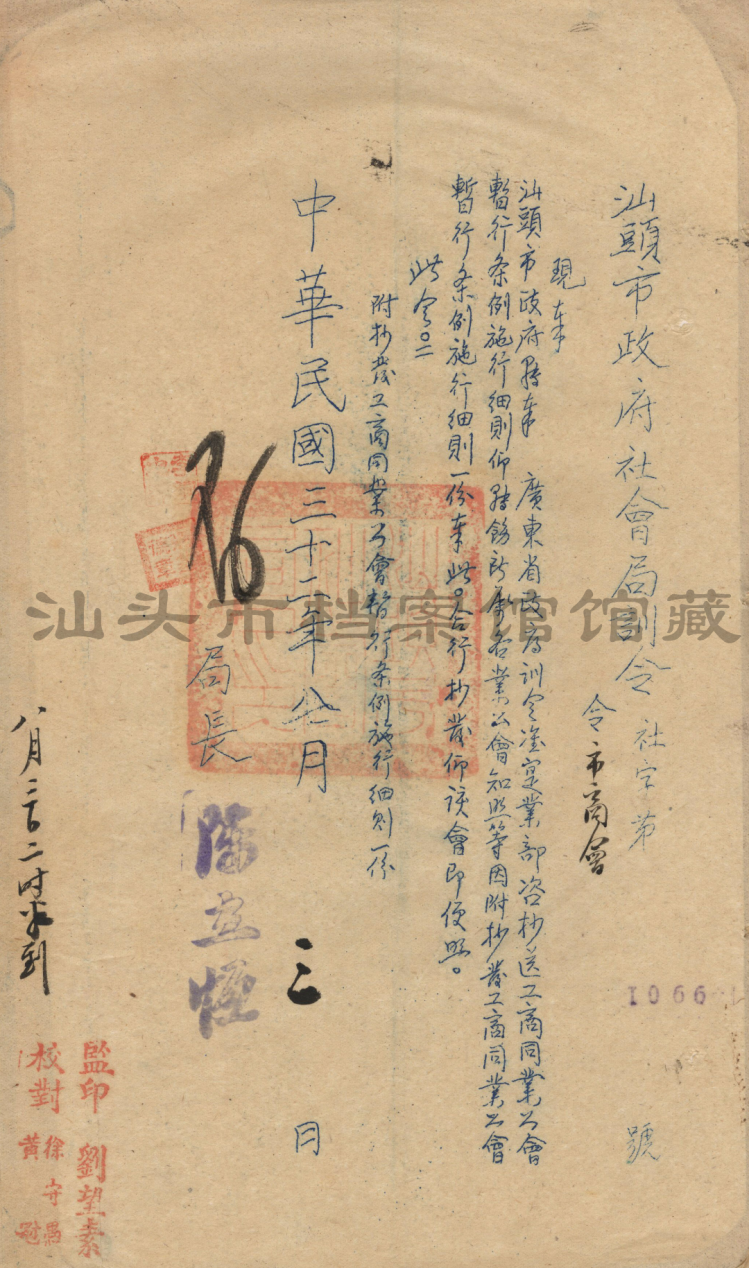 汕頭市政府社會局訓令 社字第 號
10660
令市商會
現奉
汕頭市政府轉奉 廣東省政府訓令准寔業部咨抄送工商同業公會
暫行条例施行細則仰轉飭所属各業公會知照等因附抄發工商同業公會
暫行条例施行細則一份奉此。合行抄發仰該會即便照。
此令。
附抄發工商同業公會暫行条例施行細則一份
中華民國三十二年八月三日
局長
八月三日二时半到
監印 劉望素
校對 徐守
黃
汕头市档案馆馆藏